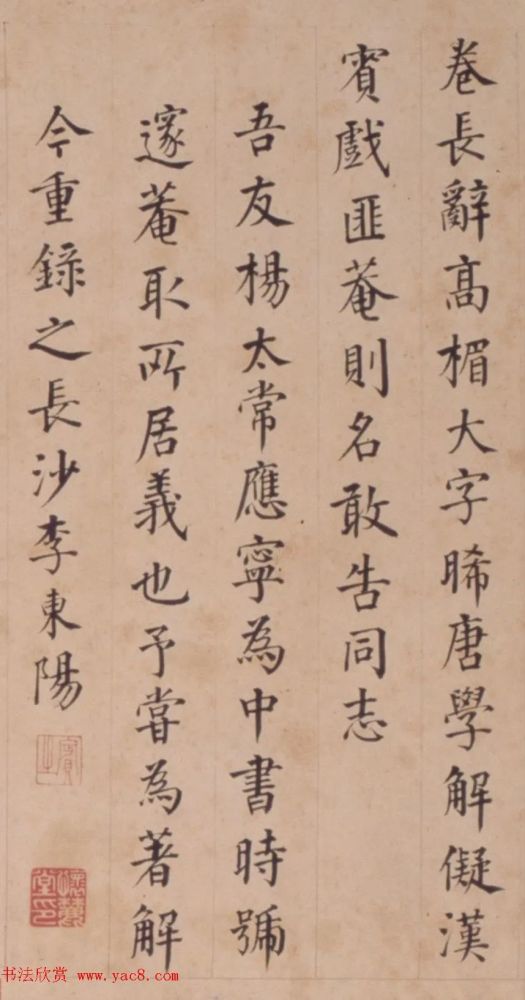 卷長辭高楣大字睎唐學解儗漢
賓戲匪菴則名敢告同志
吾友楊太常應寧為中書時號
邃菴取所居義也予嘗為著解
今重錄之長沙李東陽
賓之
懷麓堂印
书法欣赏 www.yac8.com